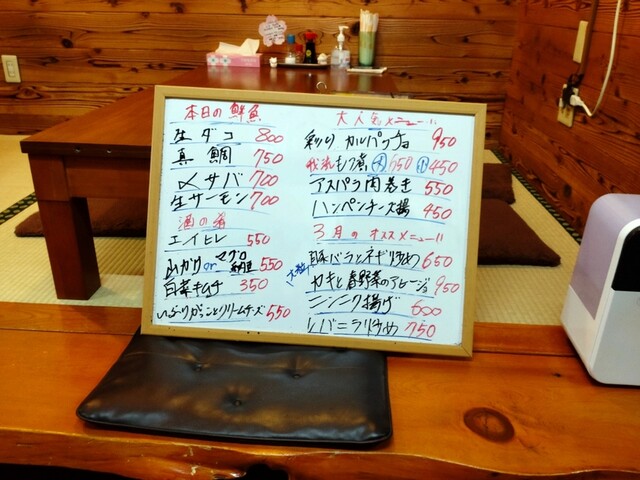 本日の鮮魚
生ダコ 800
真鯛 750
〆サバ 700
生サーモン 700
酒の肴
エイヒレ 550
山かけorマグロ納豆 550
白菜キムチ 350
いぶりがっことクリームチーズ 550
大人気メニュー!!
彩り カルパッチョ 950
我流もつ煮 大650 小450
アスパラ肉巻き 550
ハンペンチーズ揚 450
3月のオススメニュー!!
豚バラとネギ炒め 650
大粒カキと春野菜のアヒージョ 950
ニンニク揚げ 600
レバニラ炒め 750